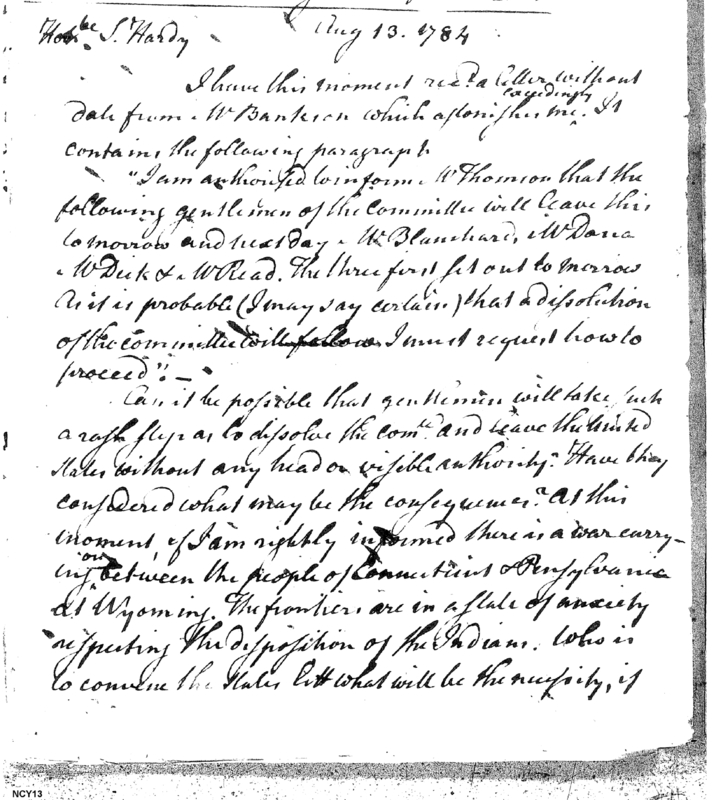 Honbe S. Hardy Aug 13. 1784
I have this moment recd. a letter without
date from Mr Bankson which astonishes me exceedingly. It
contains the following paragraph
"I am authorised to inform Mr Thomson that the
following gentlemen of the Committee will leave this
to morrow and next day Mr Blanchard, Mr Dana
Mr Dick & Mr Read. The three first set out to morrow
As it is probable (I may say certain) that a dissolution
of the committee will follow I must request how to
proceed". —
Can it be possible that gentlemen will take such
a rash step as to dissolve the Comee. and leave the United
States without any head or visible authority? Have they
considered what may be the consequences? At this
moment if I am rightly informed there is a war carry-
ing on between the people of Connecticut & Pensylvania
at Wyoming. The frontiers are in a state of anxiety
respecting the disposition of the Indians. Who is
to convene the States let what will be the necessity, if
NCY13